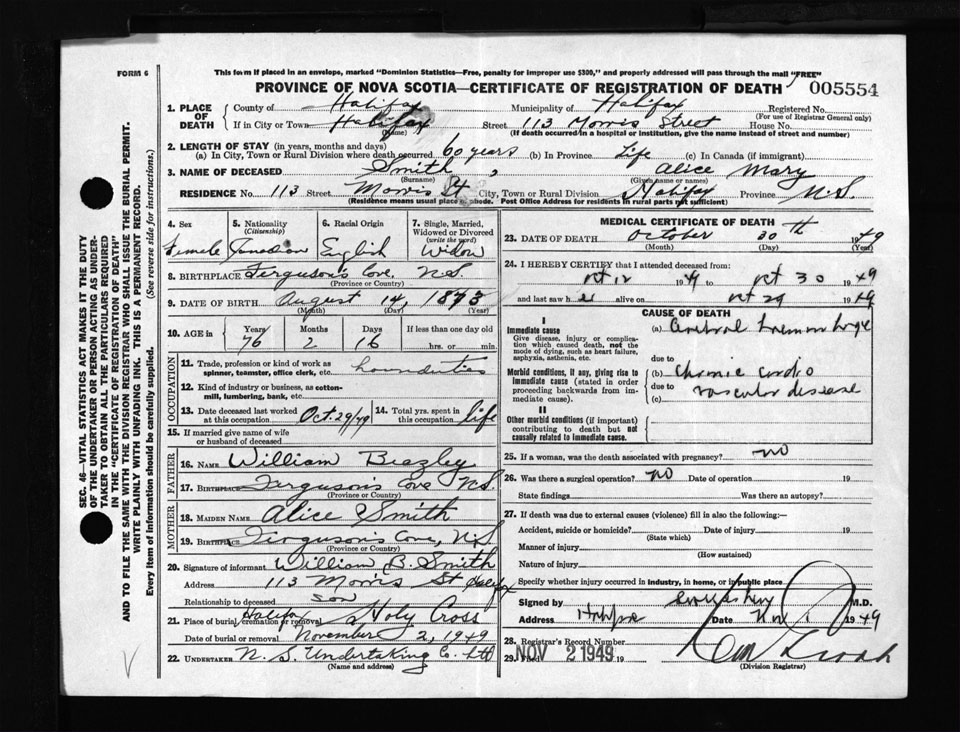 FORM 6
This form if placed in an envelope, marked "Dominion Statistics—Free, penalty for improper use $300," and properly addressed will pass through the mail "FREE"
PROVINCE OF NOVA SCOTIA—CERTIFICATE OF REGISTRATION OF DEATH 005554
1. PLACE OF DEATH
County of Halifax Municipality of Halifax Registered No.
(For use of Registrar General only)
If in City or Town Halifax Street 113 Morris Street House No.
(Name) (If death occurred in a hospital or institution, give the name instead of street and number)
2. LENGTH OF STAY (in years, months and days)
(a) In City, Town or Rural Division where death occurred 60 years (b) In Province Life (c) In Canada (if immigrant)
3. NAME OF DECEASED Smith, Alice Mary
(Surname) (Given name or names)
RESIDENCE No. 113 Street Morris St City, Town or Rural Division Halifax Province N.S.
(Residence means usual place of abode. Post Office Address for residents in rural parts not sufficient)
4. Sex 5. Nationality (Citizenship) 6. Racial Origin 7. Single, Married, Widowed or Divorced (write the word)
Female Canadian English Widow
8. BIRTHPLACE Ferguson's Cove, N.S.
(Province or Country)
9. DATE OF BIRTH August 14, 1873
(Month) (Day) (Year)
10. AGE in Years Months Days If less than one day old
76 2 16 hrs. or min.
OCCUPATION
11. Trade, profession or kind of work as spinner, teamster, office clerk, etc.
12. Kind of industry or business, as cotton-mill, lumbering, bank, etc.
13. Date deceased last worked at this occupation Oct. 29/49 14. Total yrs. spent in this occupation Life
15. If married give name of wife or husband of deceased
FATHER
16. NAME William Beazley
17. Birthplace Ferguson's Cove N.S.
(Province or Country)
MOTHER
18. MAIDEN NAME Alice Smith
19. Birthplace Ferguson's Cove, N.S
(Province or Country)
20. Signature of informant William B. Smith
Address 113 Morris St Halifax
Relationship to deceased son
21. Place of burial, cremation or removal Halifax Holy Cross
Date of burial or removal November 2, 1949
22. UNDERTAKER N. S. Undertaking Co. Ltd
(Name and address)
MEDICAL CERTIFICATE OF DEATH
23. DATE OF DEATH October 30th 1949
(Month) (Day) (Year)
24. I HEREBY CERTIFY that I attended deceased from:
Oct 12 1949 Oct 30 1949
and last saw her alive on Oct 29 1949
CAUSE OF DEATH
I
Immediate cause
Give disease, injury or complication which caused death, not the mode of dying, such as heart failure, asphyxia, asthenia, etc.
(a) Cerebral hemorrhage
due to
Morbid conditions, if any, giving rise to immediate cause (stated in order proceeding backwards from immediate cause).
(b) Chronic cardio
due to vascular disease
(c)
II
Other morbid conditions (if important) contributing to death but not causally related to immediate cause.
25. If a woman, was the death associated with pregnancy? no
26. Was there a surgical operation? no Date of operation 19
State findings Was there an autopsy?
27. If death was due to external causes (violence) fill in also the following:—
Accident, suicide or homicide? Date of injury 19
(State which)
Manner of injury
(How sustained)
Nature of injury
Specify whether injury occurred in industry, in home, or in public place
Signed by M.D.
Address Halifax Date Nov 1 1949
28. Registrar's Record Number
29. Filed NOV 2 1949 19
(Division Registrar)
SEC. 46—VITAL STATISTICS ACT MAKES IT THE DUTY
OF THE UNDERTAKER OR PERSON ACTING AS UNDER-
TAKER TO OBTAIN ALL THE PARTICULARS REQUIRED
IN THE "CERTIFICATE OF REGISTRATION OF DEATH"
AND TO FILE THE SAME WITH THE DIVISION REGISTRAR WHO SHALL ISSUE THE BURIAL PERMIT.
WRITE PLAINLY WITH UNFADING INK. THIS IS A PERMANENT RECORD.
Every item of information should be carefully supplied. (See reverse side for instructions.)